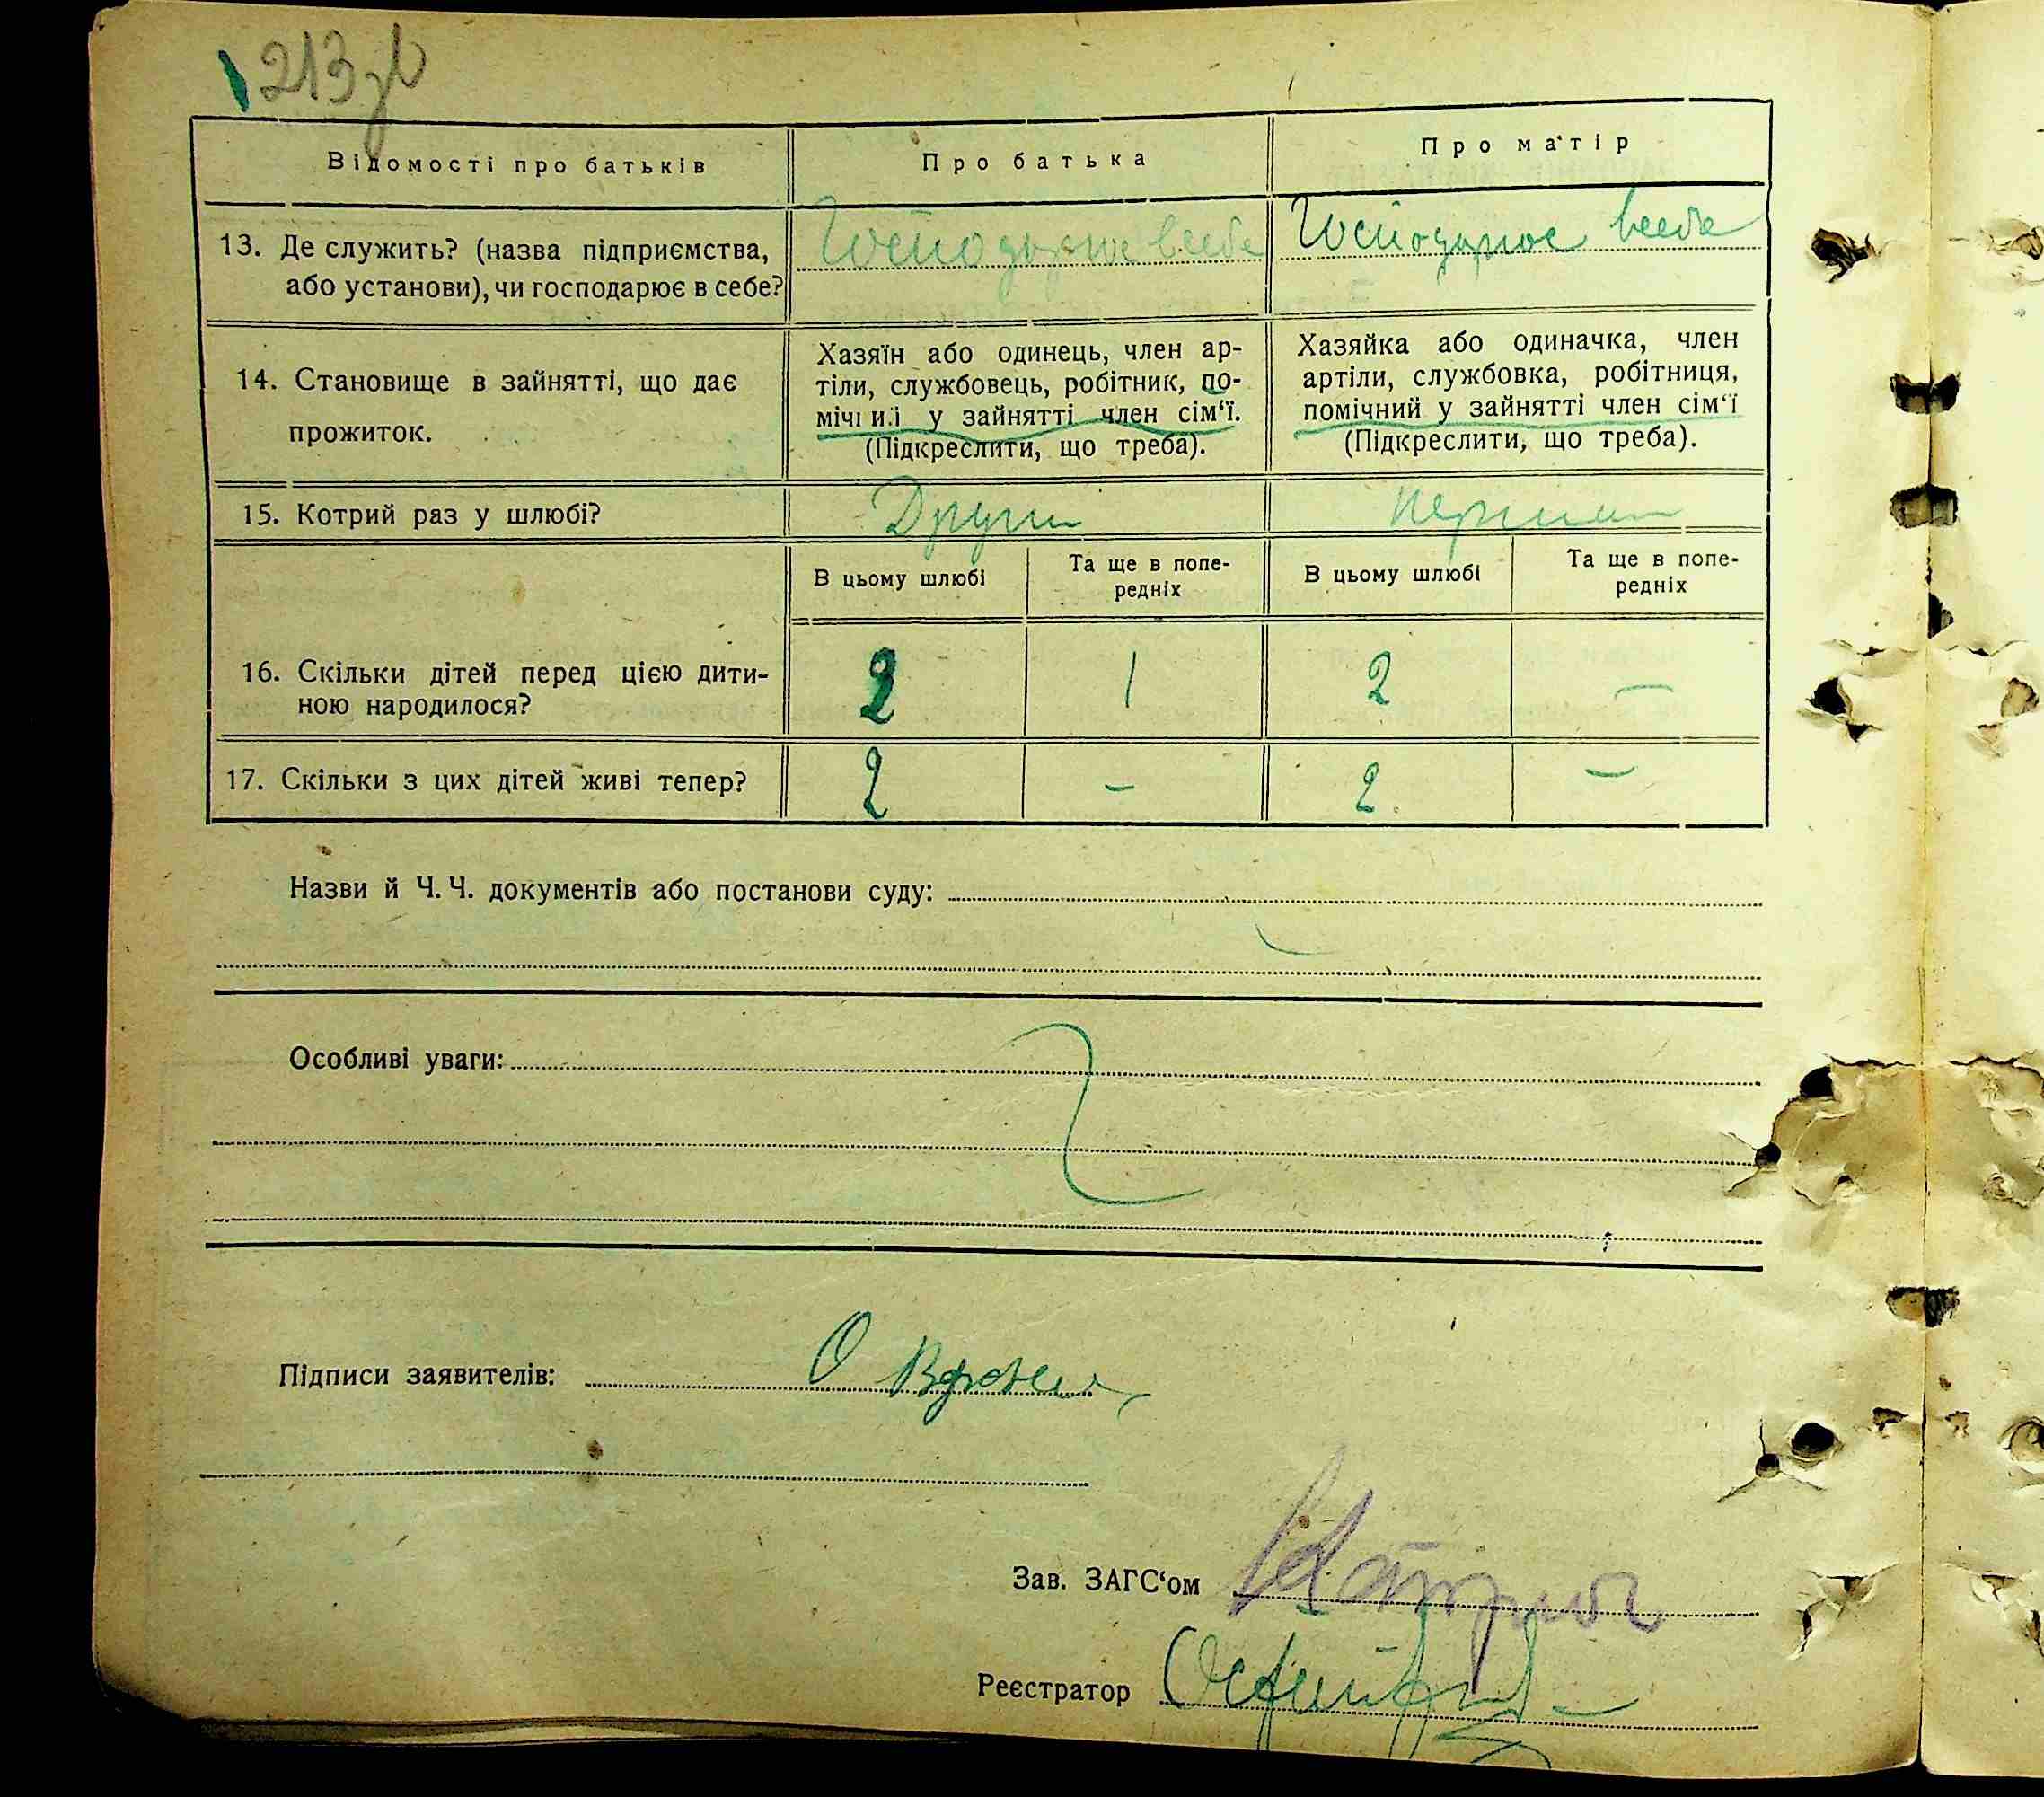 213зв
Відомості про батьків
Про батька
Про матір
13. Де служить? (назва підприємства,
або установи), чи господарює в себе?
Господарює в себе
Господарює в себе
14. Становище в зайнятті, що дає
прожиток.
Хазяїн або одинець, член ар-
тіли, службовець, робітник, по-
мічний у зайнятті член сім'ї.
(Підкреслити, що треба).
Хазяйка або одиначка, член
артіли, службовка, робітниця,
помічний у зайнятті член сім'ї
(Підкреслити, що треба).
15. Котрий раз у шлюбі?
Други
Першии
В цьому шлюбі
Та ще в попе-
редніх
В цьому шлюбі
Та ще в попе-
редніх
16. Скільки дітей перед цією дити-
ною народилося?
2
1
2
—
17. Скільки з цих дітей живі тепер?
2
—
2
—
Назви й Ч. Ч. документів або постанови суду:
Особливі уваги:
Підписи заявителів:
Зав. ЗАГС'ом
Реєстратор